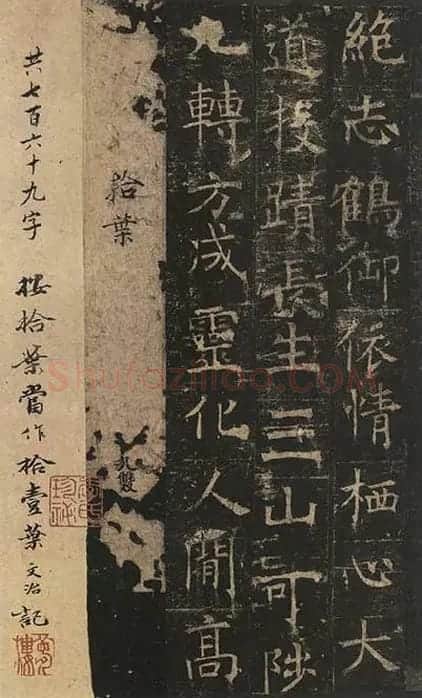 絶志鶴御依情栖心大
道投蹟長生三山可陟
九轉方成靈化人間髙
拾葉
共七百六十九字 按拾葉當作拾壹葉 文治記
夢樓
Shufaziliao.COM